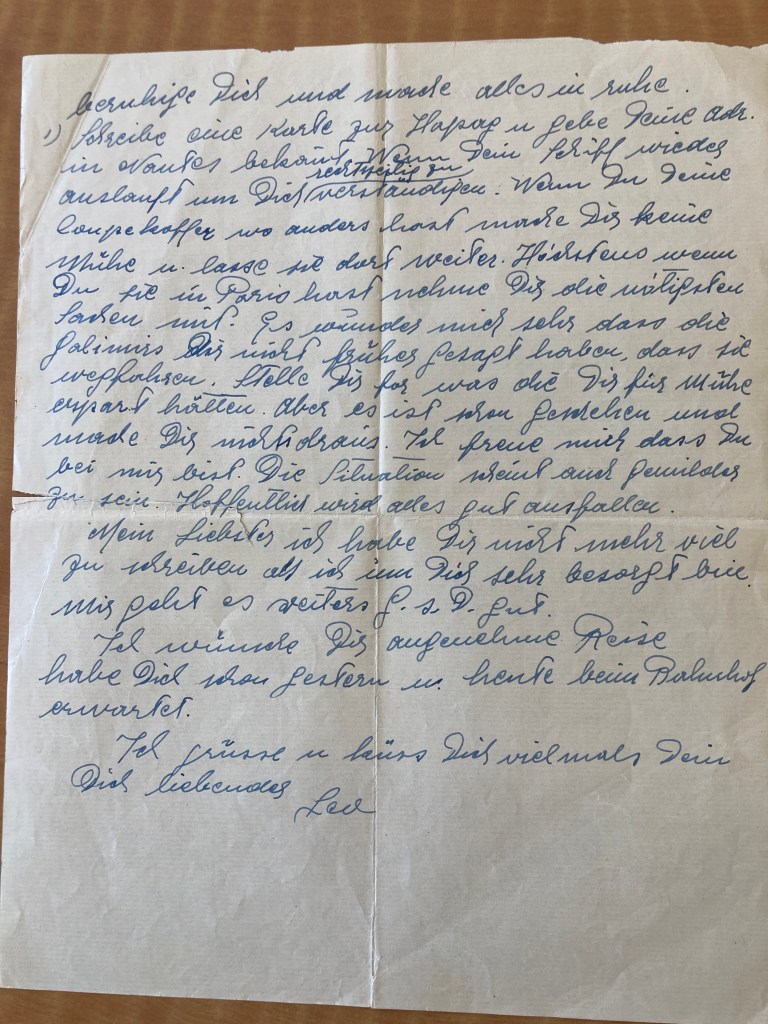 beruhige Dich und mache alles in ruhe.
1) Schreibe eine Karte zur Hapag u gebe Deine Adr.
in Nantes bekannt Wenn Dein Schiff wieder
rechtzeitig zu
auslauft um Dich verständigen. Wenn Du Deine
Coupekoffer wo anders hast mache Dir keine
Mühe u. lasse sie dort weiter. Höchstens wenn
Du sie in Paris hast nehme Dir die nötigsten
Sachen mit. Es wunder mich sehr dass die
Dir nicht früher gesagt haben, dass sie
wegfahren. Stelle Dir for was die Dir für Mühe
erpart hätten. Aber es ist schon geschehen und
mache Dir nichts draus. Ich freue mich dass Du
bei mir bist. Die Situation scheint auch gemildert
zu sein. Hoffentlich wird alles gut ausfallen.
Mein Liebster ich habe Dir nicht mehr viel
zu schreiben als ich um Dich sehr besorgt bin.
Mir geht es weiters G. s. D. gut.
Ich wünsche Dir angenehme Reise
habe Dich schon gestern u. heute beim Bahnhof
erwartet.
Ich grüsse u küss Dich vielmals Dein
Dich liebender
Leo